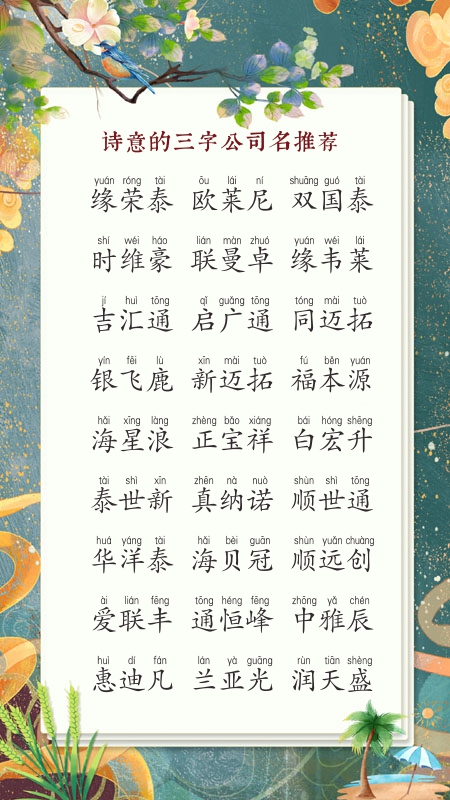 诗意的三字公司名推荐
yuán róng tài ōu lái ní shuāng guó tài
缘荣泰 欧莱尼 双国泰
shí wéi háo lián màn zhuó yuán wéi lái
时维豪 联曼卓 缘韦莱
jí huì tōng qǐ guǎng tōng tóng mài tuò
吉汇通 启广通 同迈拓
yín fēi lù xīn mài tuò fú běn yuán
银飞鹿 新迈拓 福本源
hǎi xīng làng zhèng bǎo xiáng bái hóng shēng
海星浪 正宝祥 白宏升
tài shì xīn zhēn nà nuò shùn shì tōng
泰世新 真纳诺 顺世通
huá yáng tài hǎi bèi guān shùn yuǎn chuàng
华洋泰 海贝冠 顺远创
ài lián fēng tōng héng fēng zhōng yǎ chén
爱联丰 通恒峰 中雅辰
huì dí fán lán yà guāng rùn tiān shèng
惠迪凡 兰亚光 润天盛